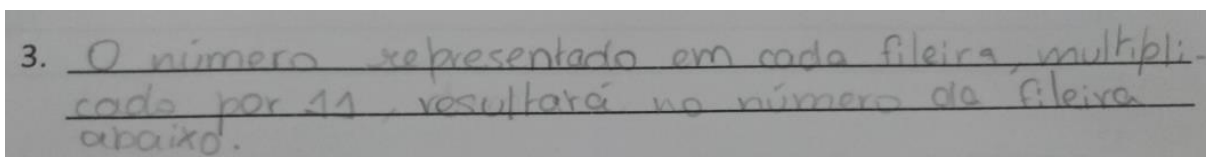 3. O número representado em cada fileira, multipli-
cado por 11, resultará no número da fileira
abaixo.